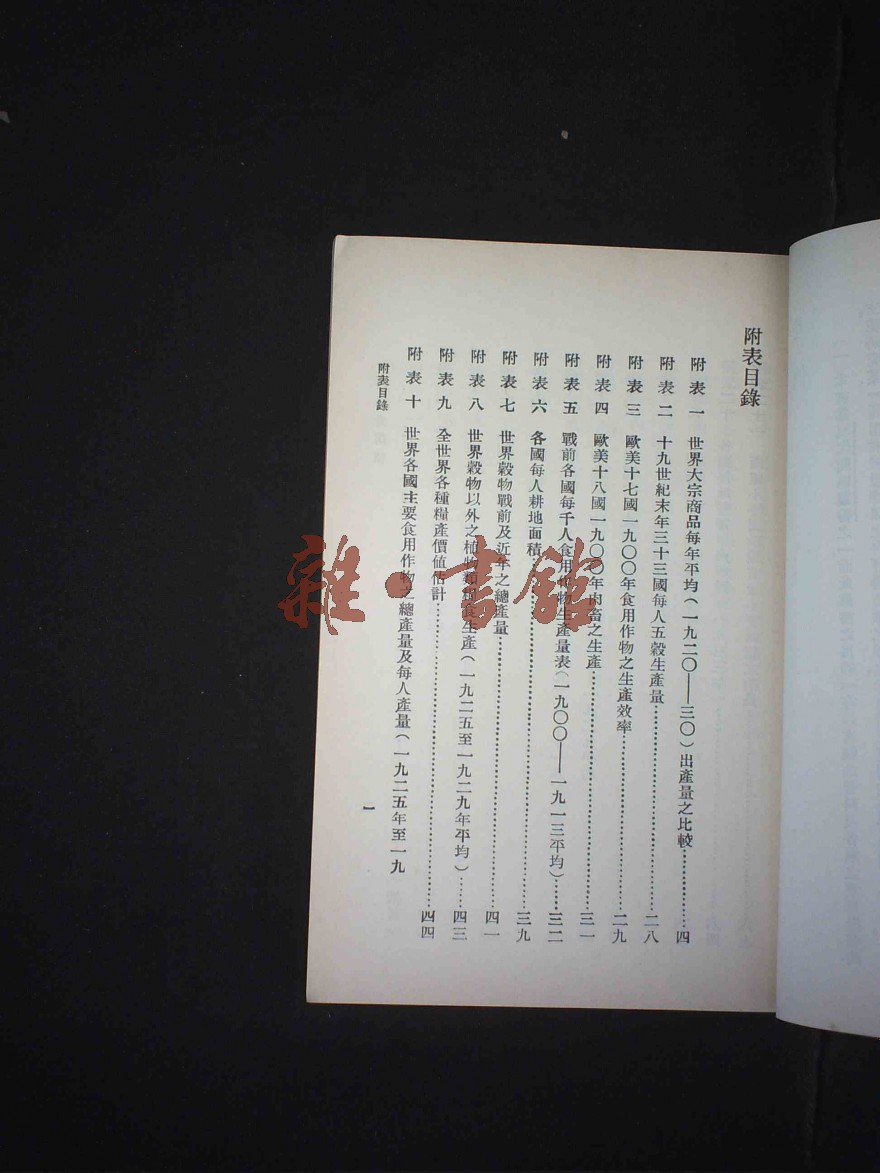 附表目錄
附表一 世界大宗商品每年平均(一九二〇——三〇)出產量之比較……四
附表二 十九世紀末年三十三國每人五穀生產量……二八
附表三 歐美十七國一九〇〇年食用作物之生產效率……二九
附表四 歐美十八國一九〇〇年肉畜之生產……三一
附表五 戰前各國每千人食用作物生產量表(一九〇〇——一九一三平均)……三二
附表六 各國每人耕地面積……三九
附表七 世界穀物戰前及近年之總產量……四一
附表八 世界穀物以外之植物類糧食生產(一九二五至一九二九年平均)……四三
附表九 全世界各種糧產價值估計……四四
附表十 世界各國主要食用作物之總產量及每人產量(一九二五年至一九
附表目錄
一
雜·書館